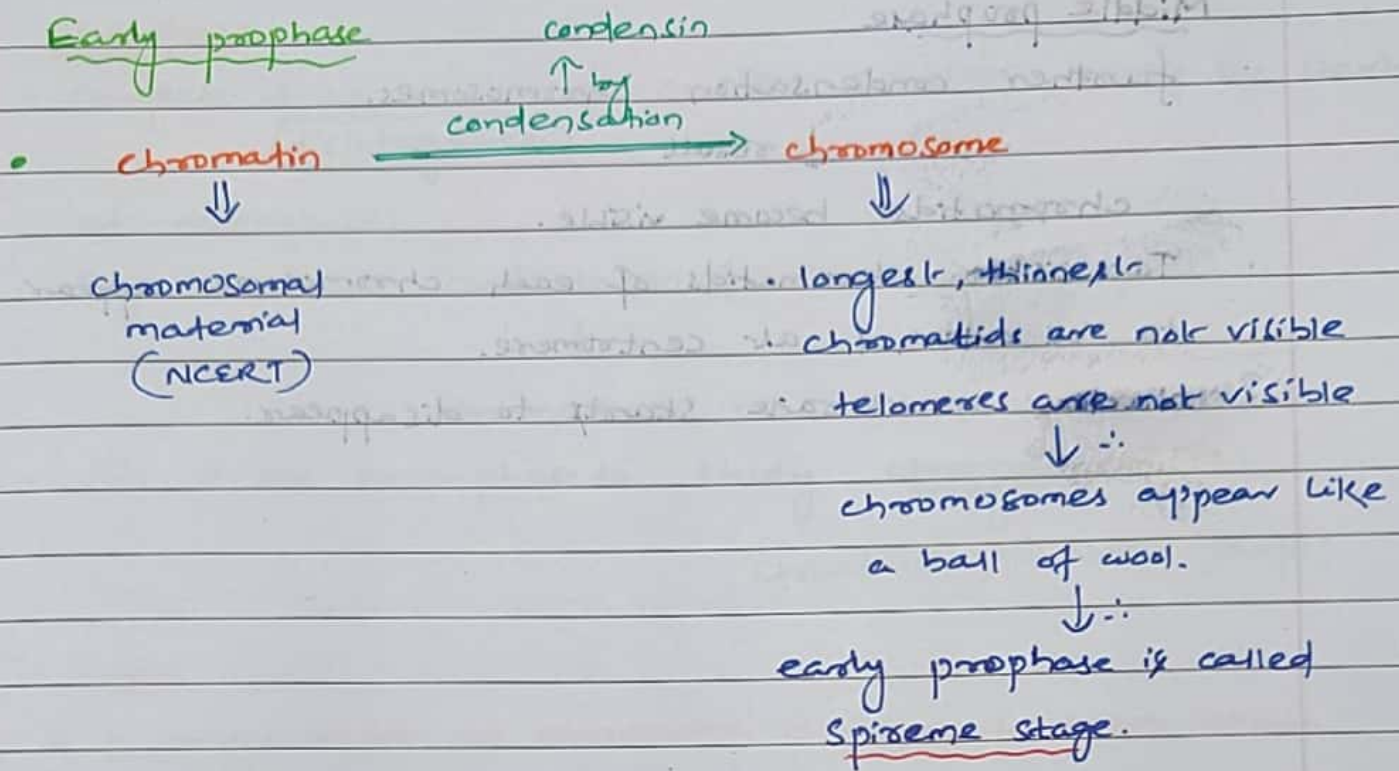 Early prophase
condensin
↑ by
condensation
• chromatin ⟶ chromosome
⇓ ⇓
chromosomal
material
(NCERT)
• longest, thinnest
• chromatids are not visible
• telomeres are not visible
↓ ∴
chromosomes appear like
a ball of wool.
↓ ∴
early prophase is called
Spireme stage.